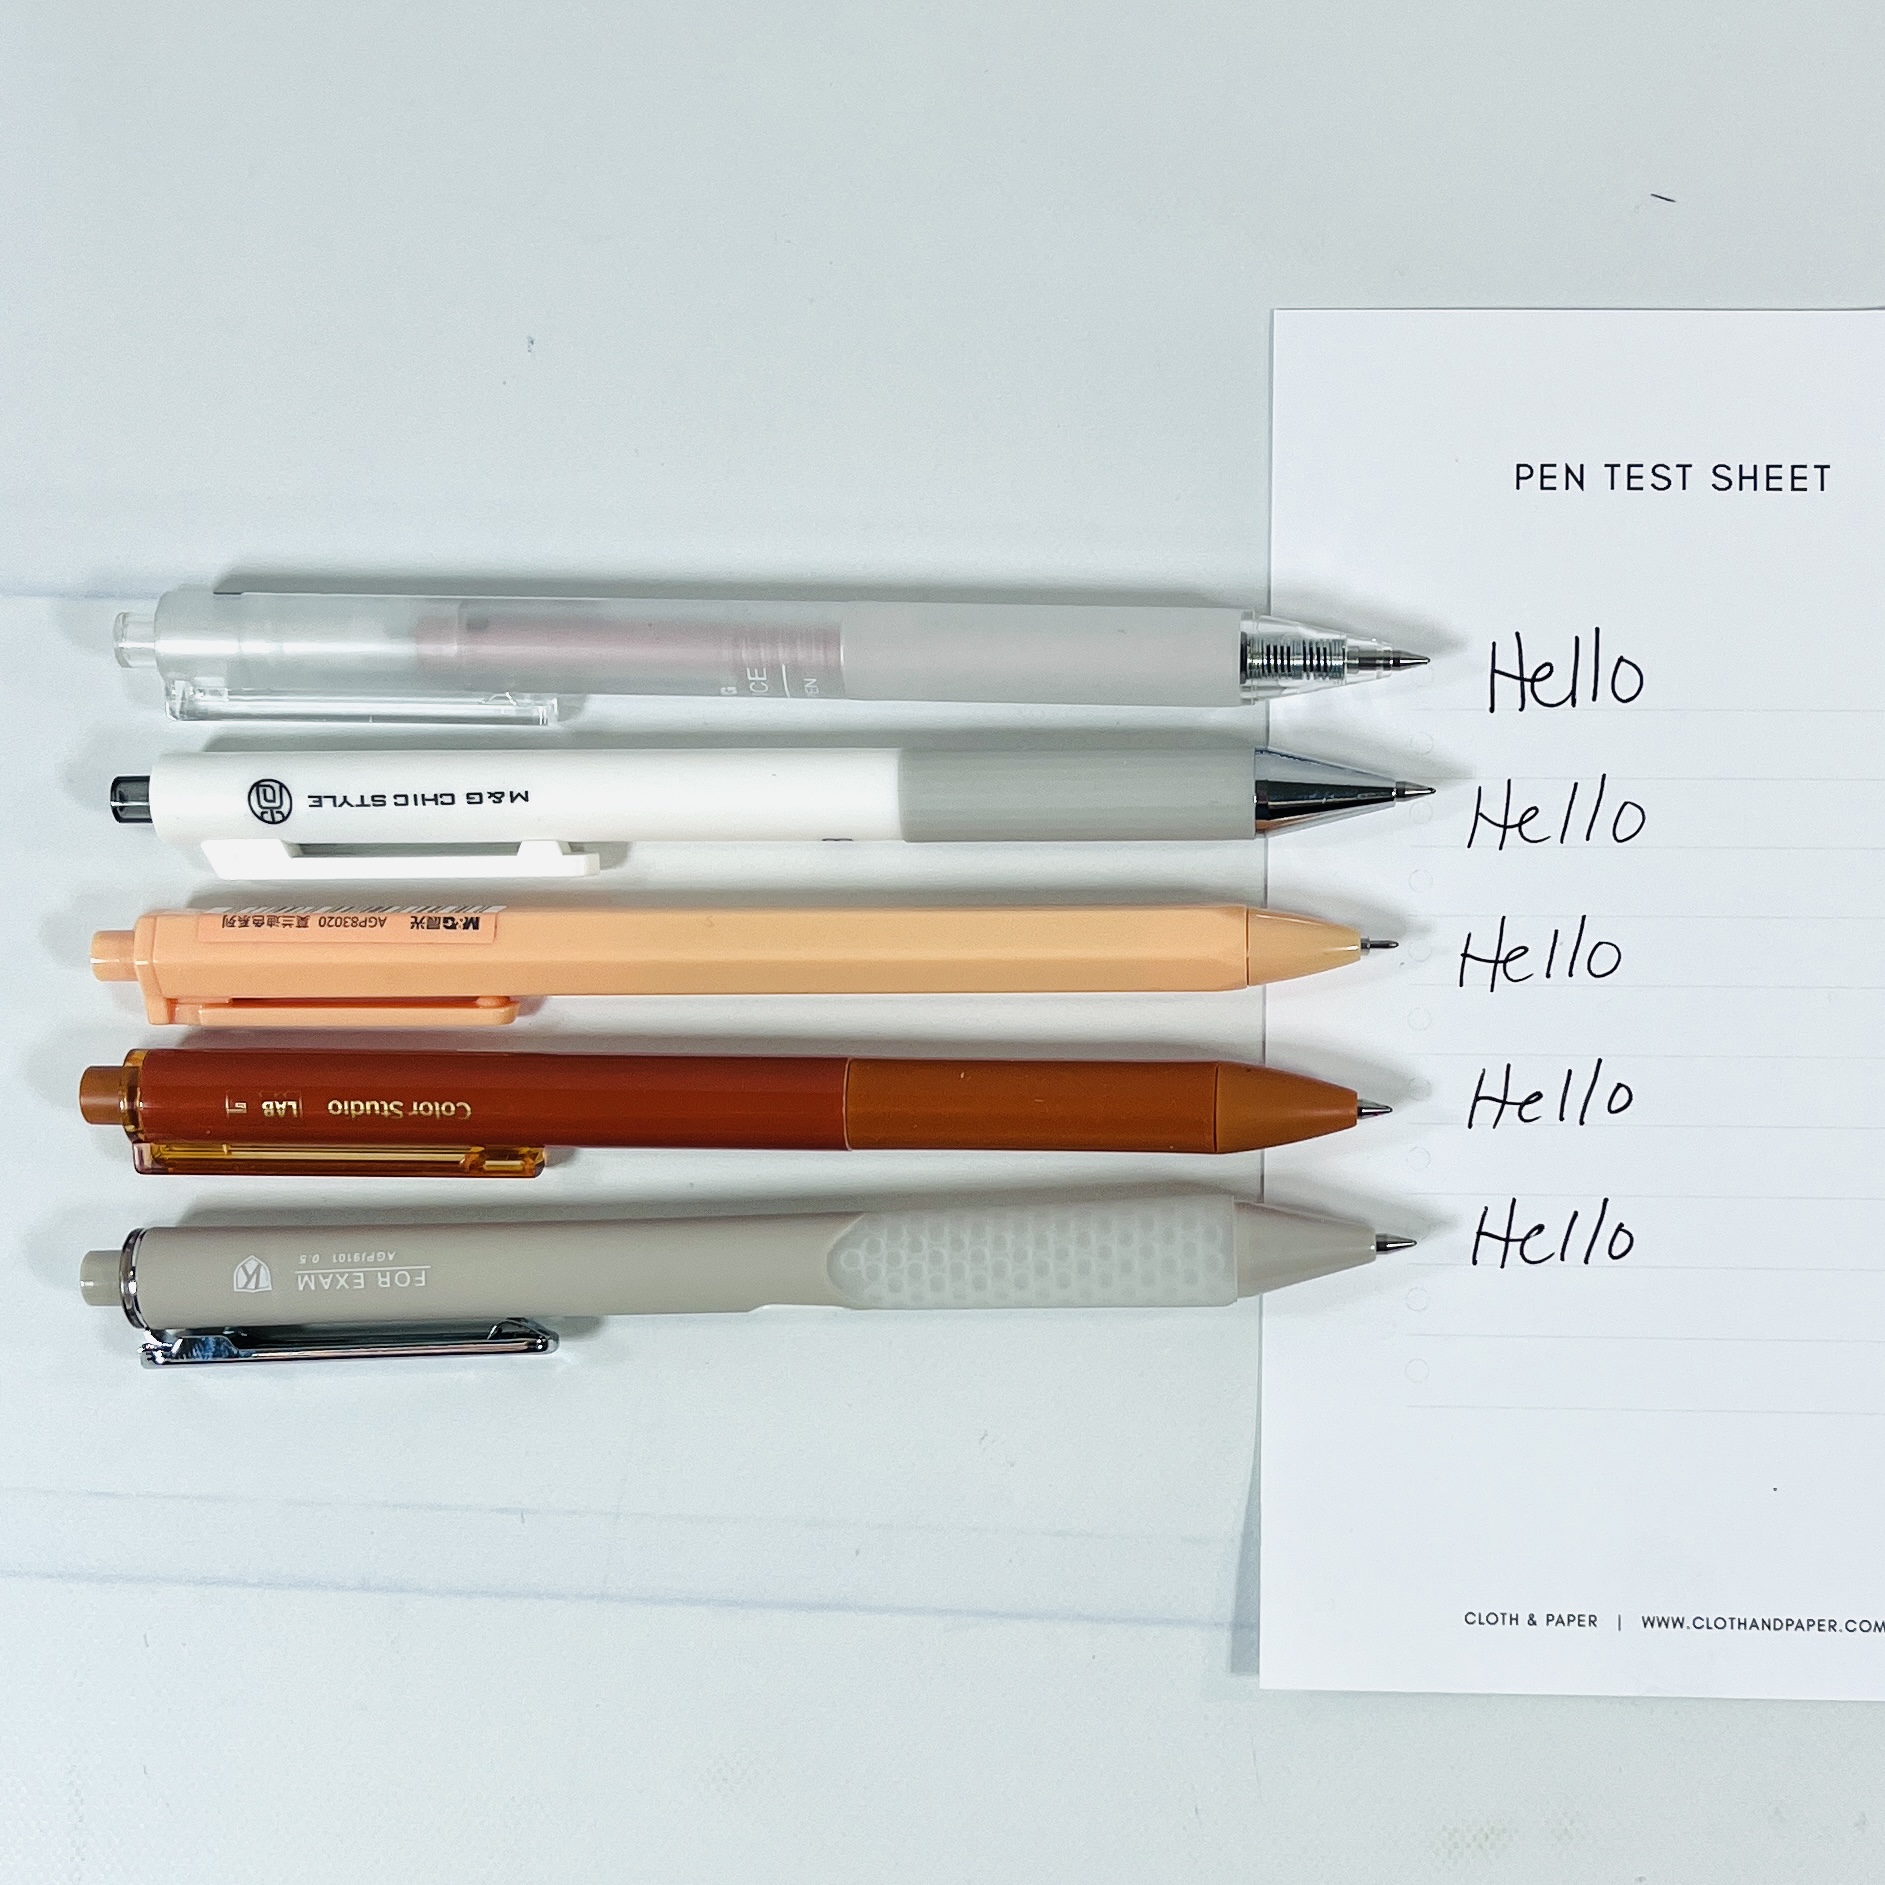 PEN TEST SHEET
Hello
M&G CHIC STYLE
Hello
M&G晨光 AGP83020 莫兰迪色系列
Hello
Color Studio LAB
Hello
FOR EXAM
AGPJ9101 0.5
K
Hello
CLOTH & PAPER | WWW.CLOTHANDPAPER.COM